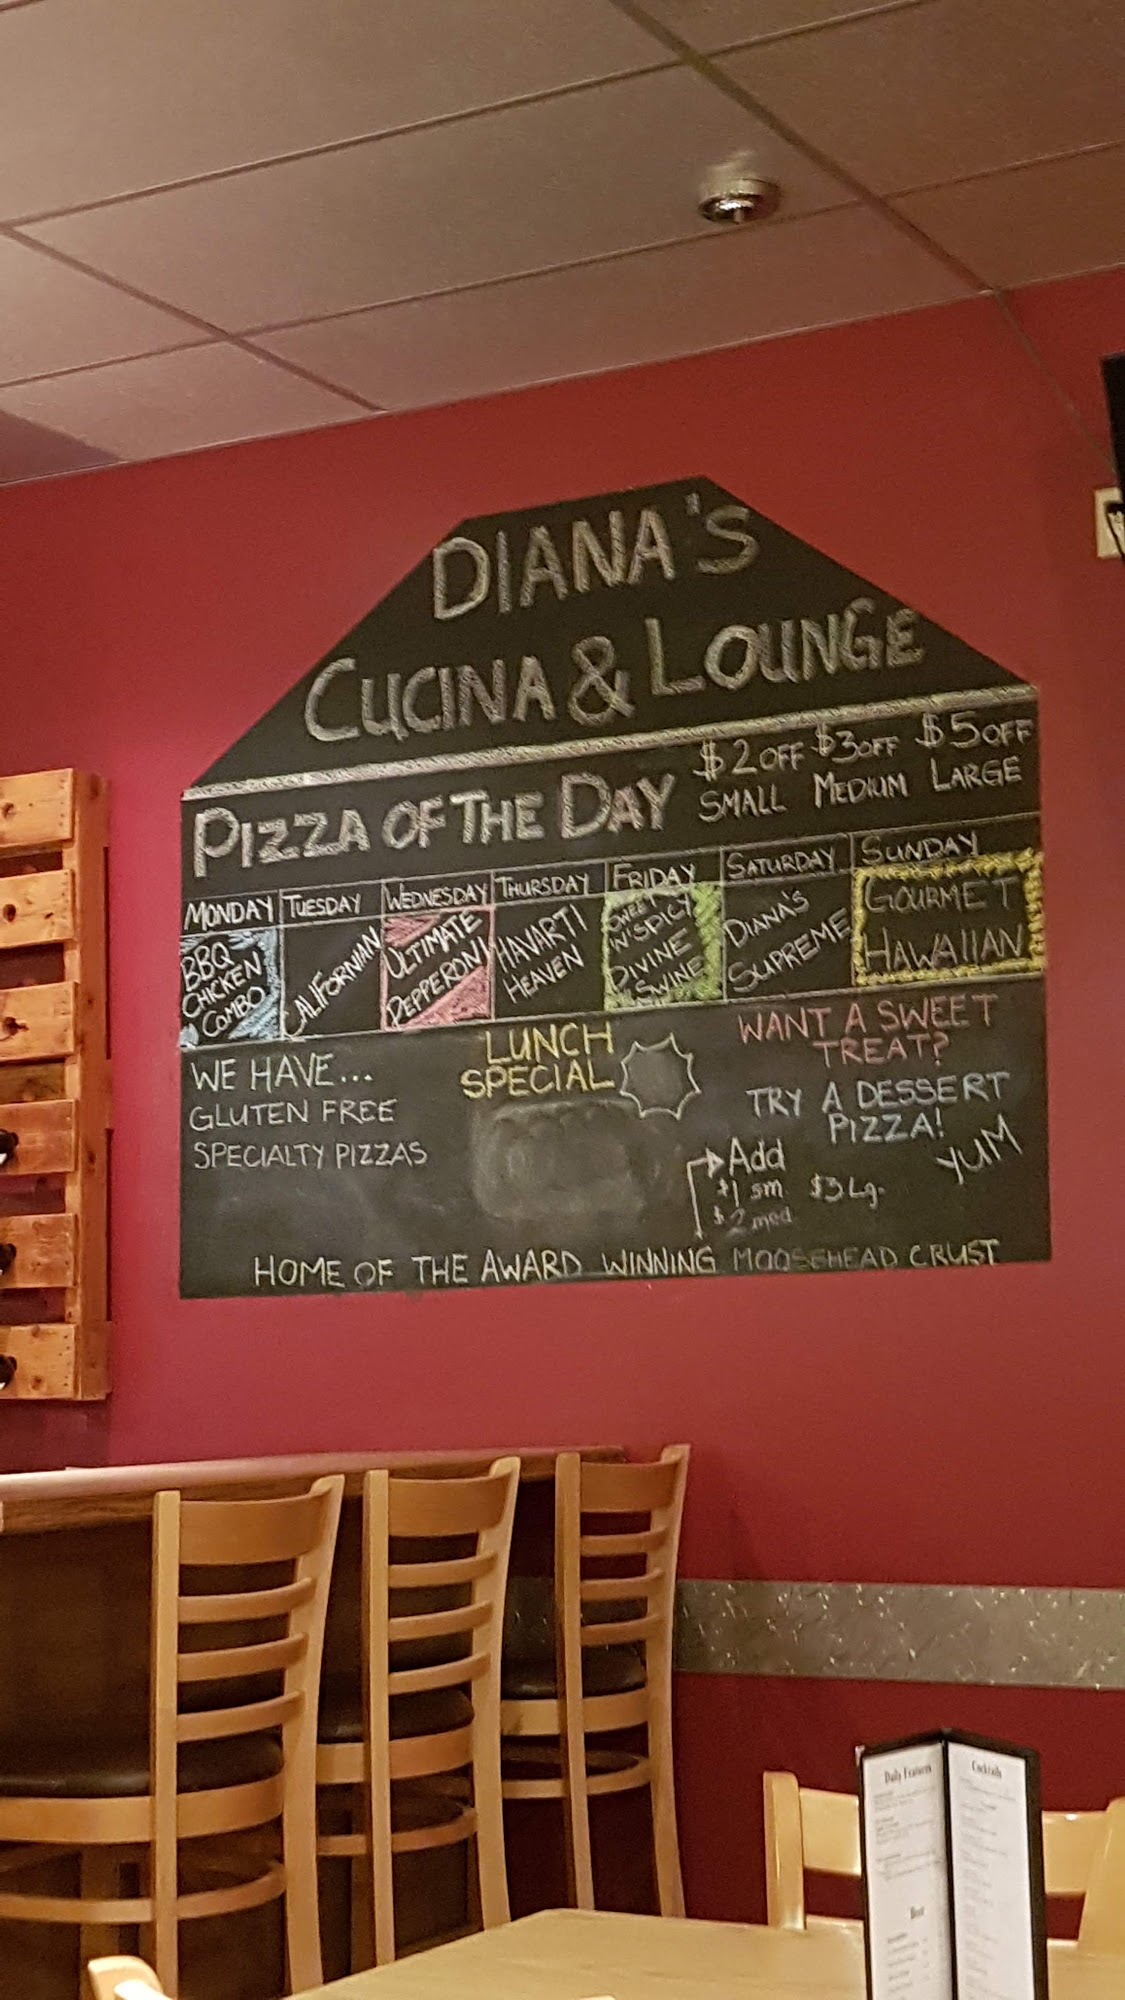 DIANA'S
CUCINA & LOUNGE
PIZZA OF THE DAY
$2 OFF $3 OFF $5 OFF
SMALL MEDIUM LARGE
MONDAY TUESDAY WEDNESDAY THURSDAY FRIDAY SATURDAY SUNDAY
BBQ
CHICKEN
COMBO
CALIFORNIAN
ULTIMATE
PEPPERONI
HAVARTI
HEAVEN
SWEET
N' SPICY
DIVINE
SWINE
DIANA'S
SUPREME
GOURMET
HAWAIIAN
WE HAVE...
GLUTEN FREE
SPECIALTY PIZZAS
LUNCH
SPECIAL
WANT A SWEET
TREAT?
TRY A DESSERT
PIZZA!
YUM
Add
$1 sm $3 Lg.
$2 med
HOME OF THE AWARD WINNING MOOSEHEAD CRUST
Daily Features
Cocktails
Beer